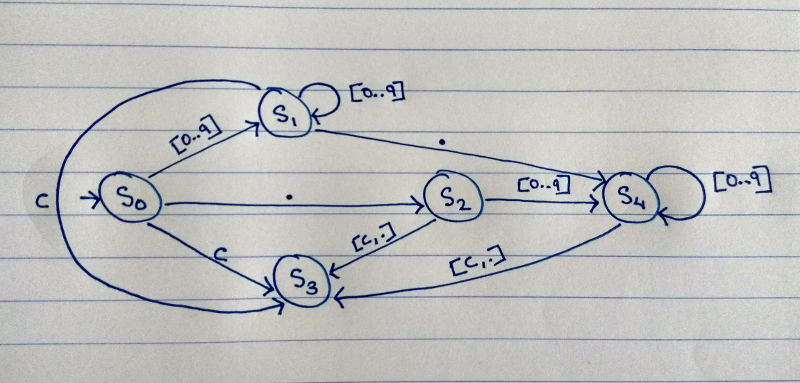 [0..9]
S1
[0..9]
.
C
S0
.
S2
[0..9]
S4
[0..9]
C
[C,.]
S3
[C,.]